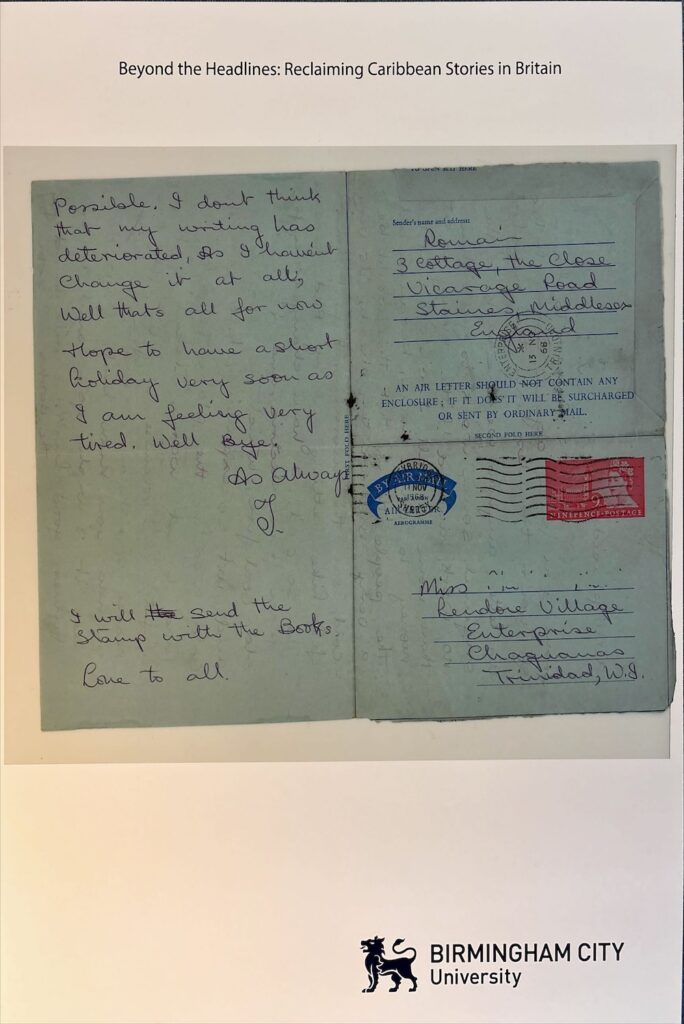 Beyond the Headlines: Reclaiming Caribbean Stories in Britain
Possible. I dont think
that my writing has
deteriorated, As I havent
Change it at all,
Well thats all for now
Hope to have a short
holiday very soon as
I am feeling very
tired. Well Bye.
As Always
J.
I will the send the
Stamp with the Books.
Love to all.
TO OPEN SLIT HERE
Sender's name and address
Romain
3 Cottage, The Close
Vicarage Road
Staines, Middlesex
England
ENTERPRISE
13 N
68
AN AIR LETTER SHOULD NOT CONTAIN ANY
ENCLOSURE; IF IT DOES IT WILL BE SURCHARGED
OR SENT BY ORDINARY MAIL.
SECOND FOLD HERE
FIRST FOLD HERE
BY AIR MAIL
AIR LETTER
AEROGRAMME
11 NOV
1968
NINEPENCE·POSTAGE
Miss
Rendore Village
Enterprise
Chaguanas
Trinidad, W.I.
BIRMINGHAM CITY
University